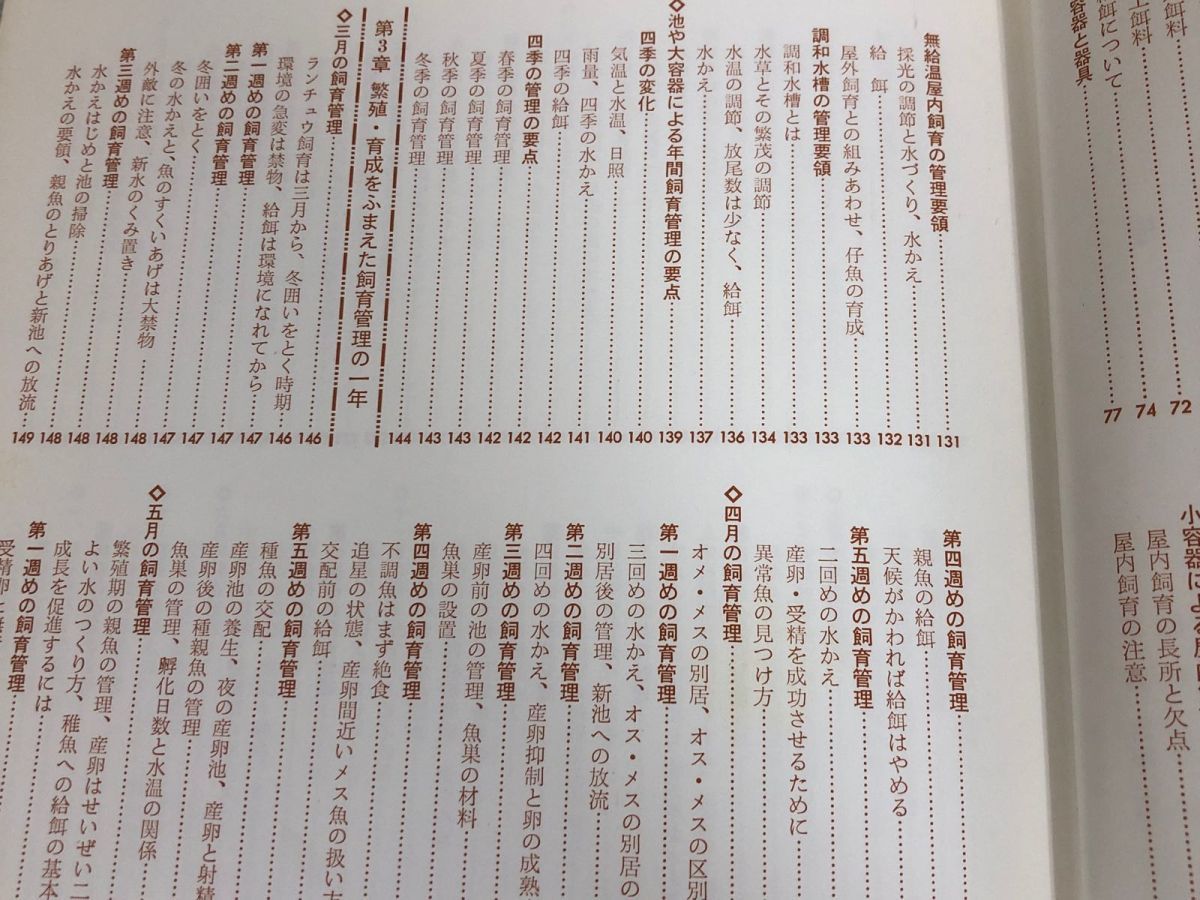 餌料
上餌料
給餌について
容器と器具
72
74
77
屋内飼育の長所と欠点
屋内飼育の注意
無給温屋内飼育の管理要領……131
採光の調節と水づくり、水かえ……131
給餌……132
屋外飼育との組みあわせ、仔魚の育成……133
調和水槽の管理要領……133
調和水槽とは……133
水草とその繁茂の調節……134
水温の調節、放尾数は少なく、給餌……136
水かえ……137
◇池や大容器による年間飼育管理の要点……139
四季の変化……140
気温と水温、日照……140
雨量、四季の水かえ……141
四季の給餌……142
四季の管理の要点……142
春季の飼育管理……142
夏季の飼育管理……143
秋季の飼育管理……143
冬季の飼育管理……144
第3章 繁殖・育成をふまえた飼育管理の一年
◇三月の飼育管理……146
ランチュウ飼育は三月から、冬囲いをとく時期……146
環境の急変は禁物、給餌は環境になれてから……147
第一週めの飼育管理……147
第二週めの飼育管理……147
冬囲いをとく……147
冬の水かえと、魚のすくいあげは大禁物……148
外敵に注意、新水のくみ置き……148
第三週めの飼育管理……148
水かえはじめと池の掃除……148
水かえの要領、親魚のとりあげと新池への放流……149
第四週めの飼育管理……
親魚の給餌……
天候がかわれば給餌はやめる……
第五週めの飼育管理……
二回めの水かえ……
産卵・受精を成功させるために……
異常魚の見つけ方……
◇四月の飼育管理……
オメ・メスの別居、オス・メスの区別
第一週めの飼育管理……
三回めの水かえ、オス・メスの別居の
別居後の管理、新池への放流……
第二週めの飼育管理……
四回めの水かえ、産卵抑制と卵の成熟
第三週めの飼育管理……
産卵前の池の管理、魚巣の材料……
魚巣の設置……
第四週めの飼育管理……
不調魚はまず絶食……
追星の状態、産卵間近いメス魚の扱い方
交配前の給餌……
第五週めの飼育管理……
種魚の交配……
産卵池の養生、夜の産卵池、産卵と射精
産卵後の種親魚の管理……
魚巣の管理、孵化日数と水温の関係……
◇五月の飼育管理……
繁殖期の親魚の管理、産卵はせいぜい二
よい水のつくり方、稚魚への給餌の基本
成長を促進するには……
第一週めの飼育管理……